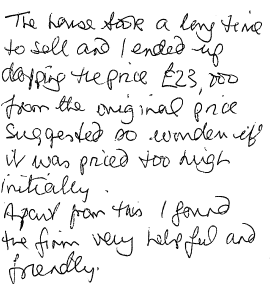 The house took a long time
to sell and I ended up
dropping the price £23,000
from the original price
suggested so wonder if
it was priced too high
initially.
Apart from this I found
the firm very helpful and
friendly.